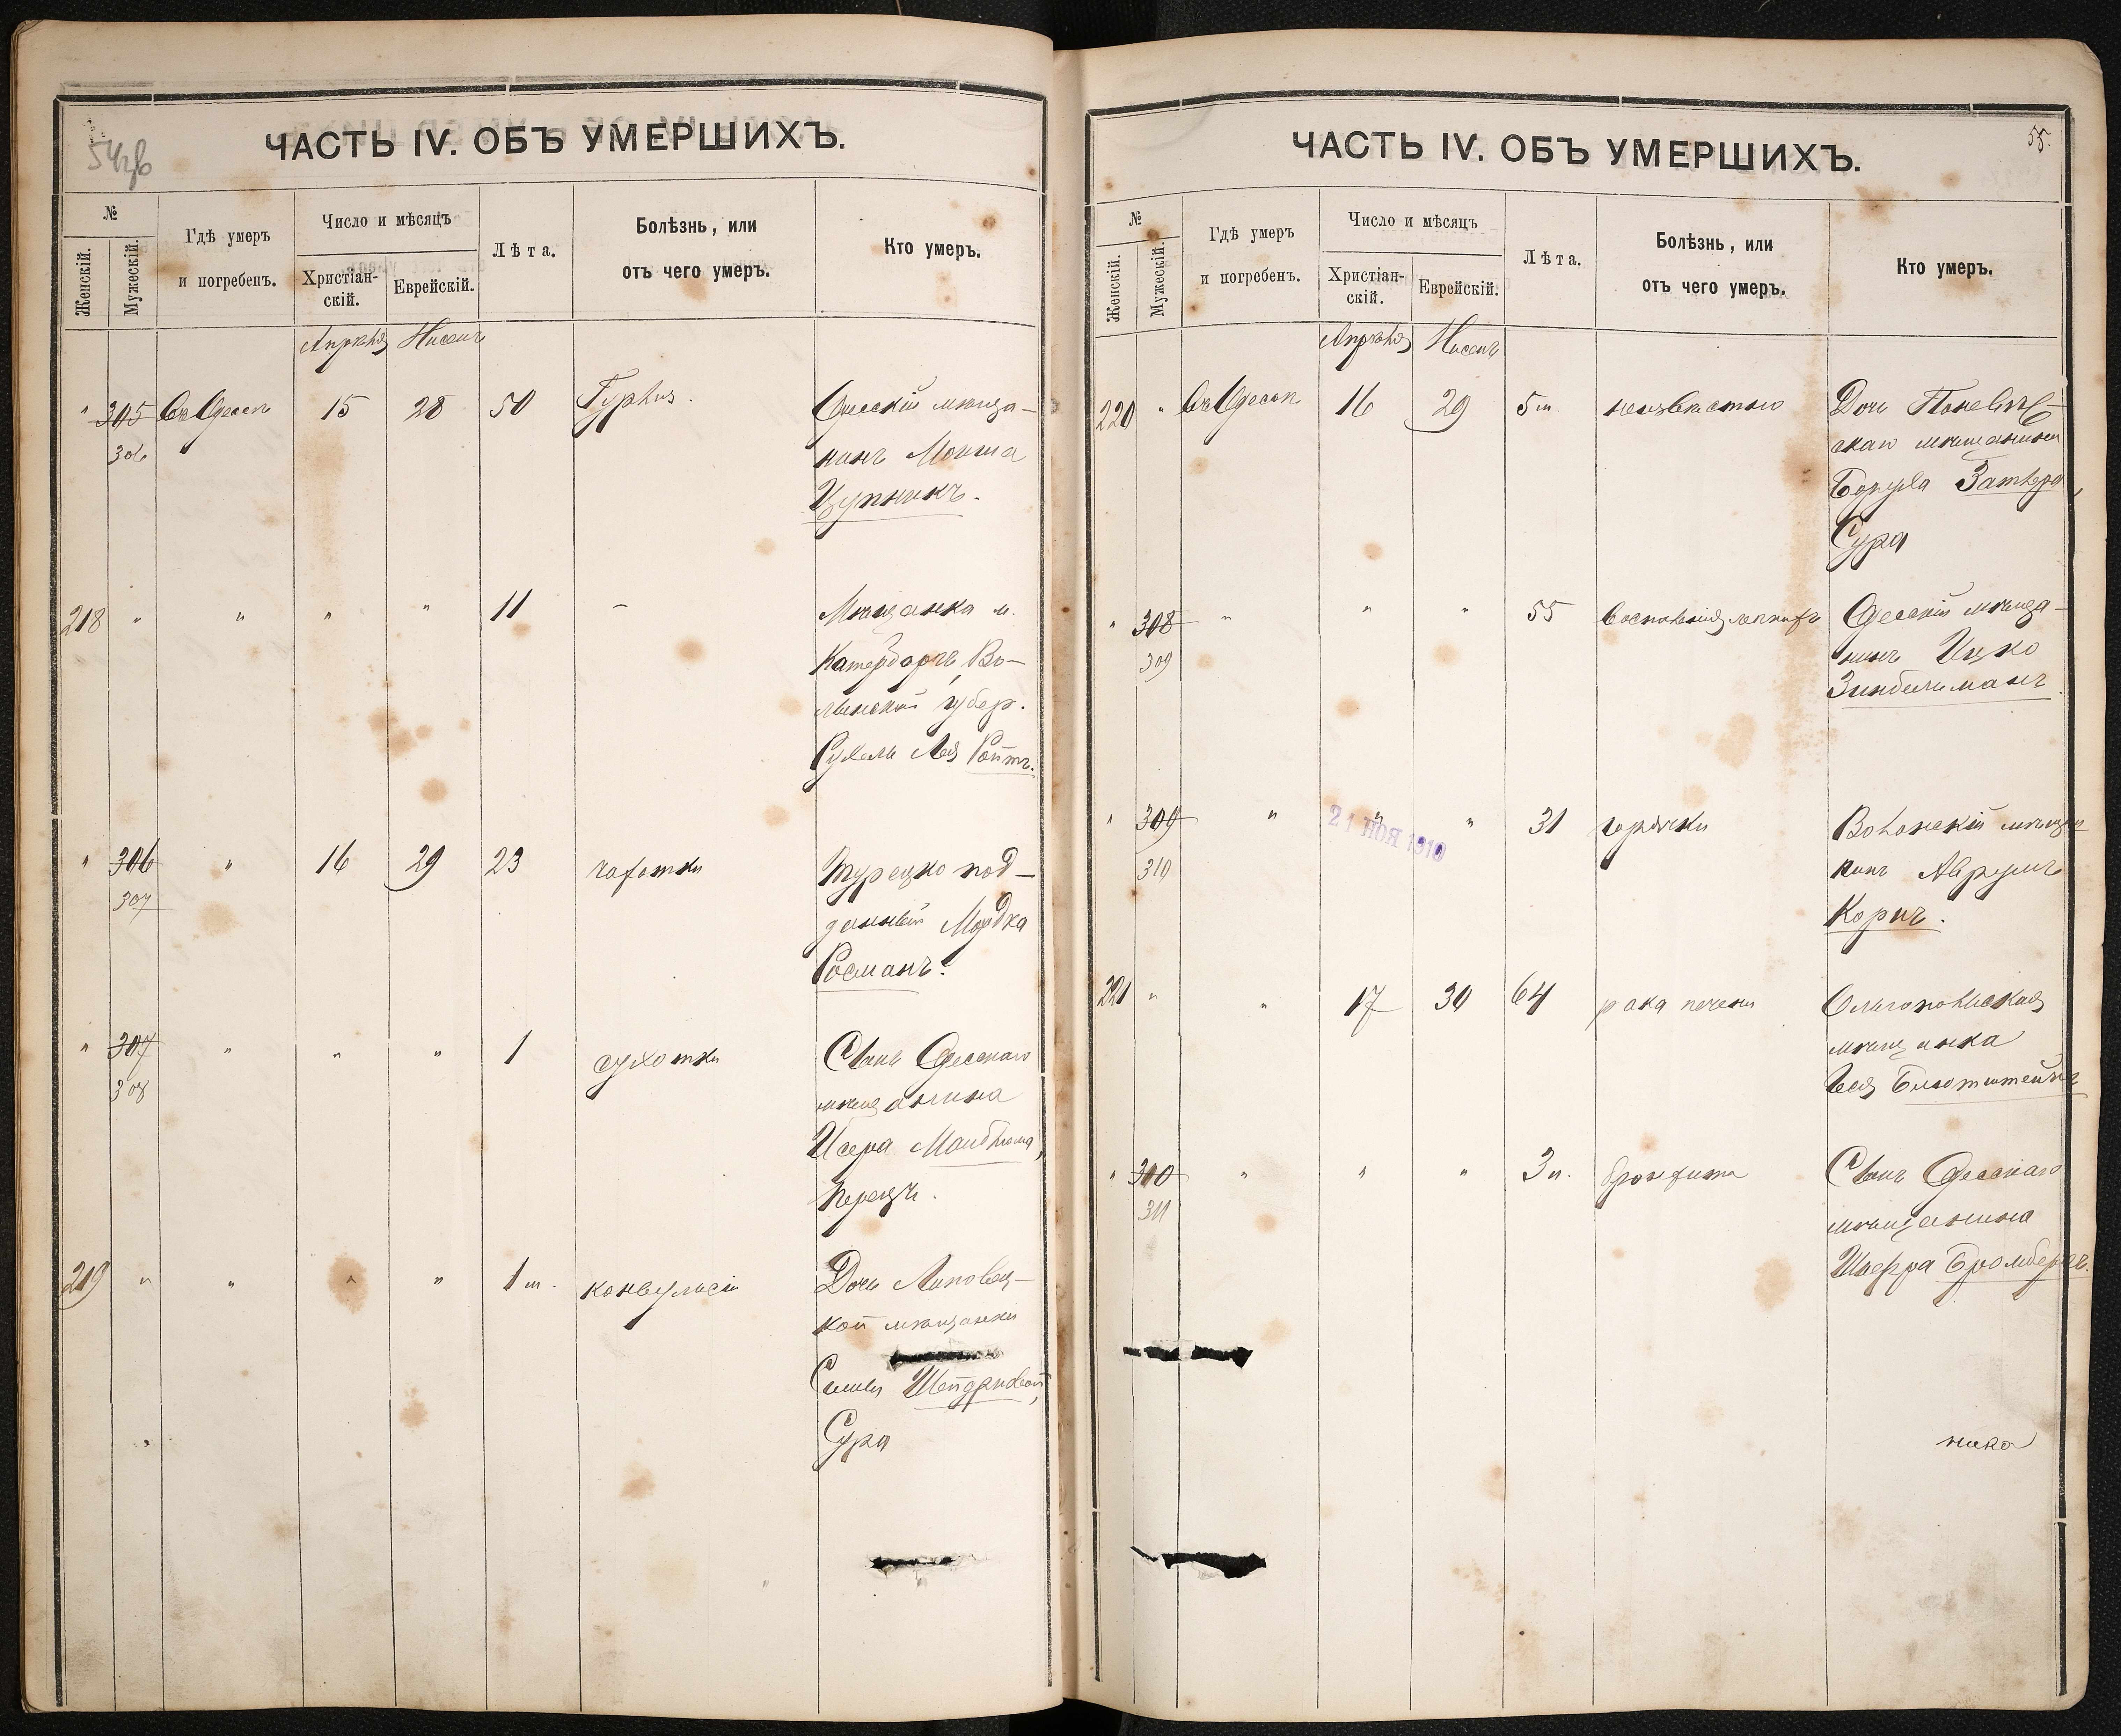 ЧАСТЬ IV. ОБЪ УМЕРШИХЪ.
№
Женскій.
Мужескій.
Гдѣ умеръ
и погребенъ.
Число и мѣсяцъ
Христіан-
скій.
Еврейскій.
Лѣта.
Болѣзнь, или
отъ чего умеръ.
Кто умеръ.
Апрѣля Нисанъ
" 305 Въ Одессѣ 15 28 50 Typhus. Одесскій мѣща-
306 нинъ Мошка
Цупникъ.
218 " " " " 11 – Мѣщанка м.
Катербургъ, Во-
лынской губер.
Рухель Лея Ройтъ.
" 306 " 16 29 23 чахотки Турецко под-
307 данный Мордка
Росманъ.
" 307 " " " 1 сухотки Сынъ Одесскаго
308 мѣщанина
Исера
Перецъ.
219 " " " " 1 м. конвульсіи Дочь Липовец-
кой мѣщанки
Симы
Сура
ЧАСТЬ IV. ОБЪ УМЕРШИХЪ.
55.
№
Женскій.
Мужескій.
Гдѣ умеръ
и погребенъ.
Число и мѣсяцъ
Христіан-
скій.
Еврейскій.
Лѣта.
Болѣзнь, или
отъ чего умеръ.
Кто умеръ.
Апрѣля Нисанъ
220 " Въ Одессѣ 16 29 5 м. неизвѣстно Дочь Поневѣж-
скаго мѣщанина
Боруха
Сура
" 308 " " " 55 Воспаленія легкихъ Одесскій мѣща-
309 нинъ Ицко
Зинбельманъ
" 309 " " " 31 горячки мѣща-
310 нинъ Аврумъ
Корнъ.
21 НОЯ 1910
221 " " 17 30 64 рака печени Ольгопольская
мѣщанка
Бея Блюмштейнъ
" 310 " " " 3 н. бронхита Сынъ Одесскаго
311 мѣщанина
Шаеръ Бромбергъ.
ника